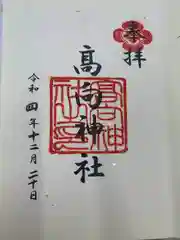 奉拝
高向神社
令和四年十二月二十日